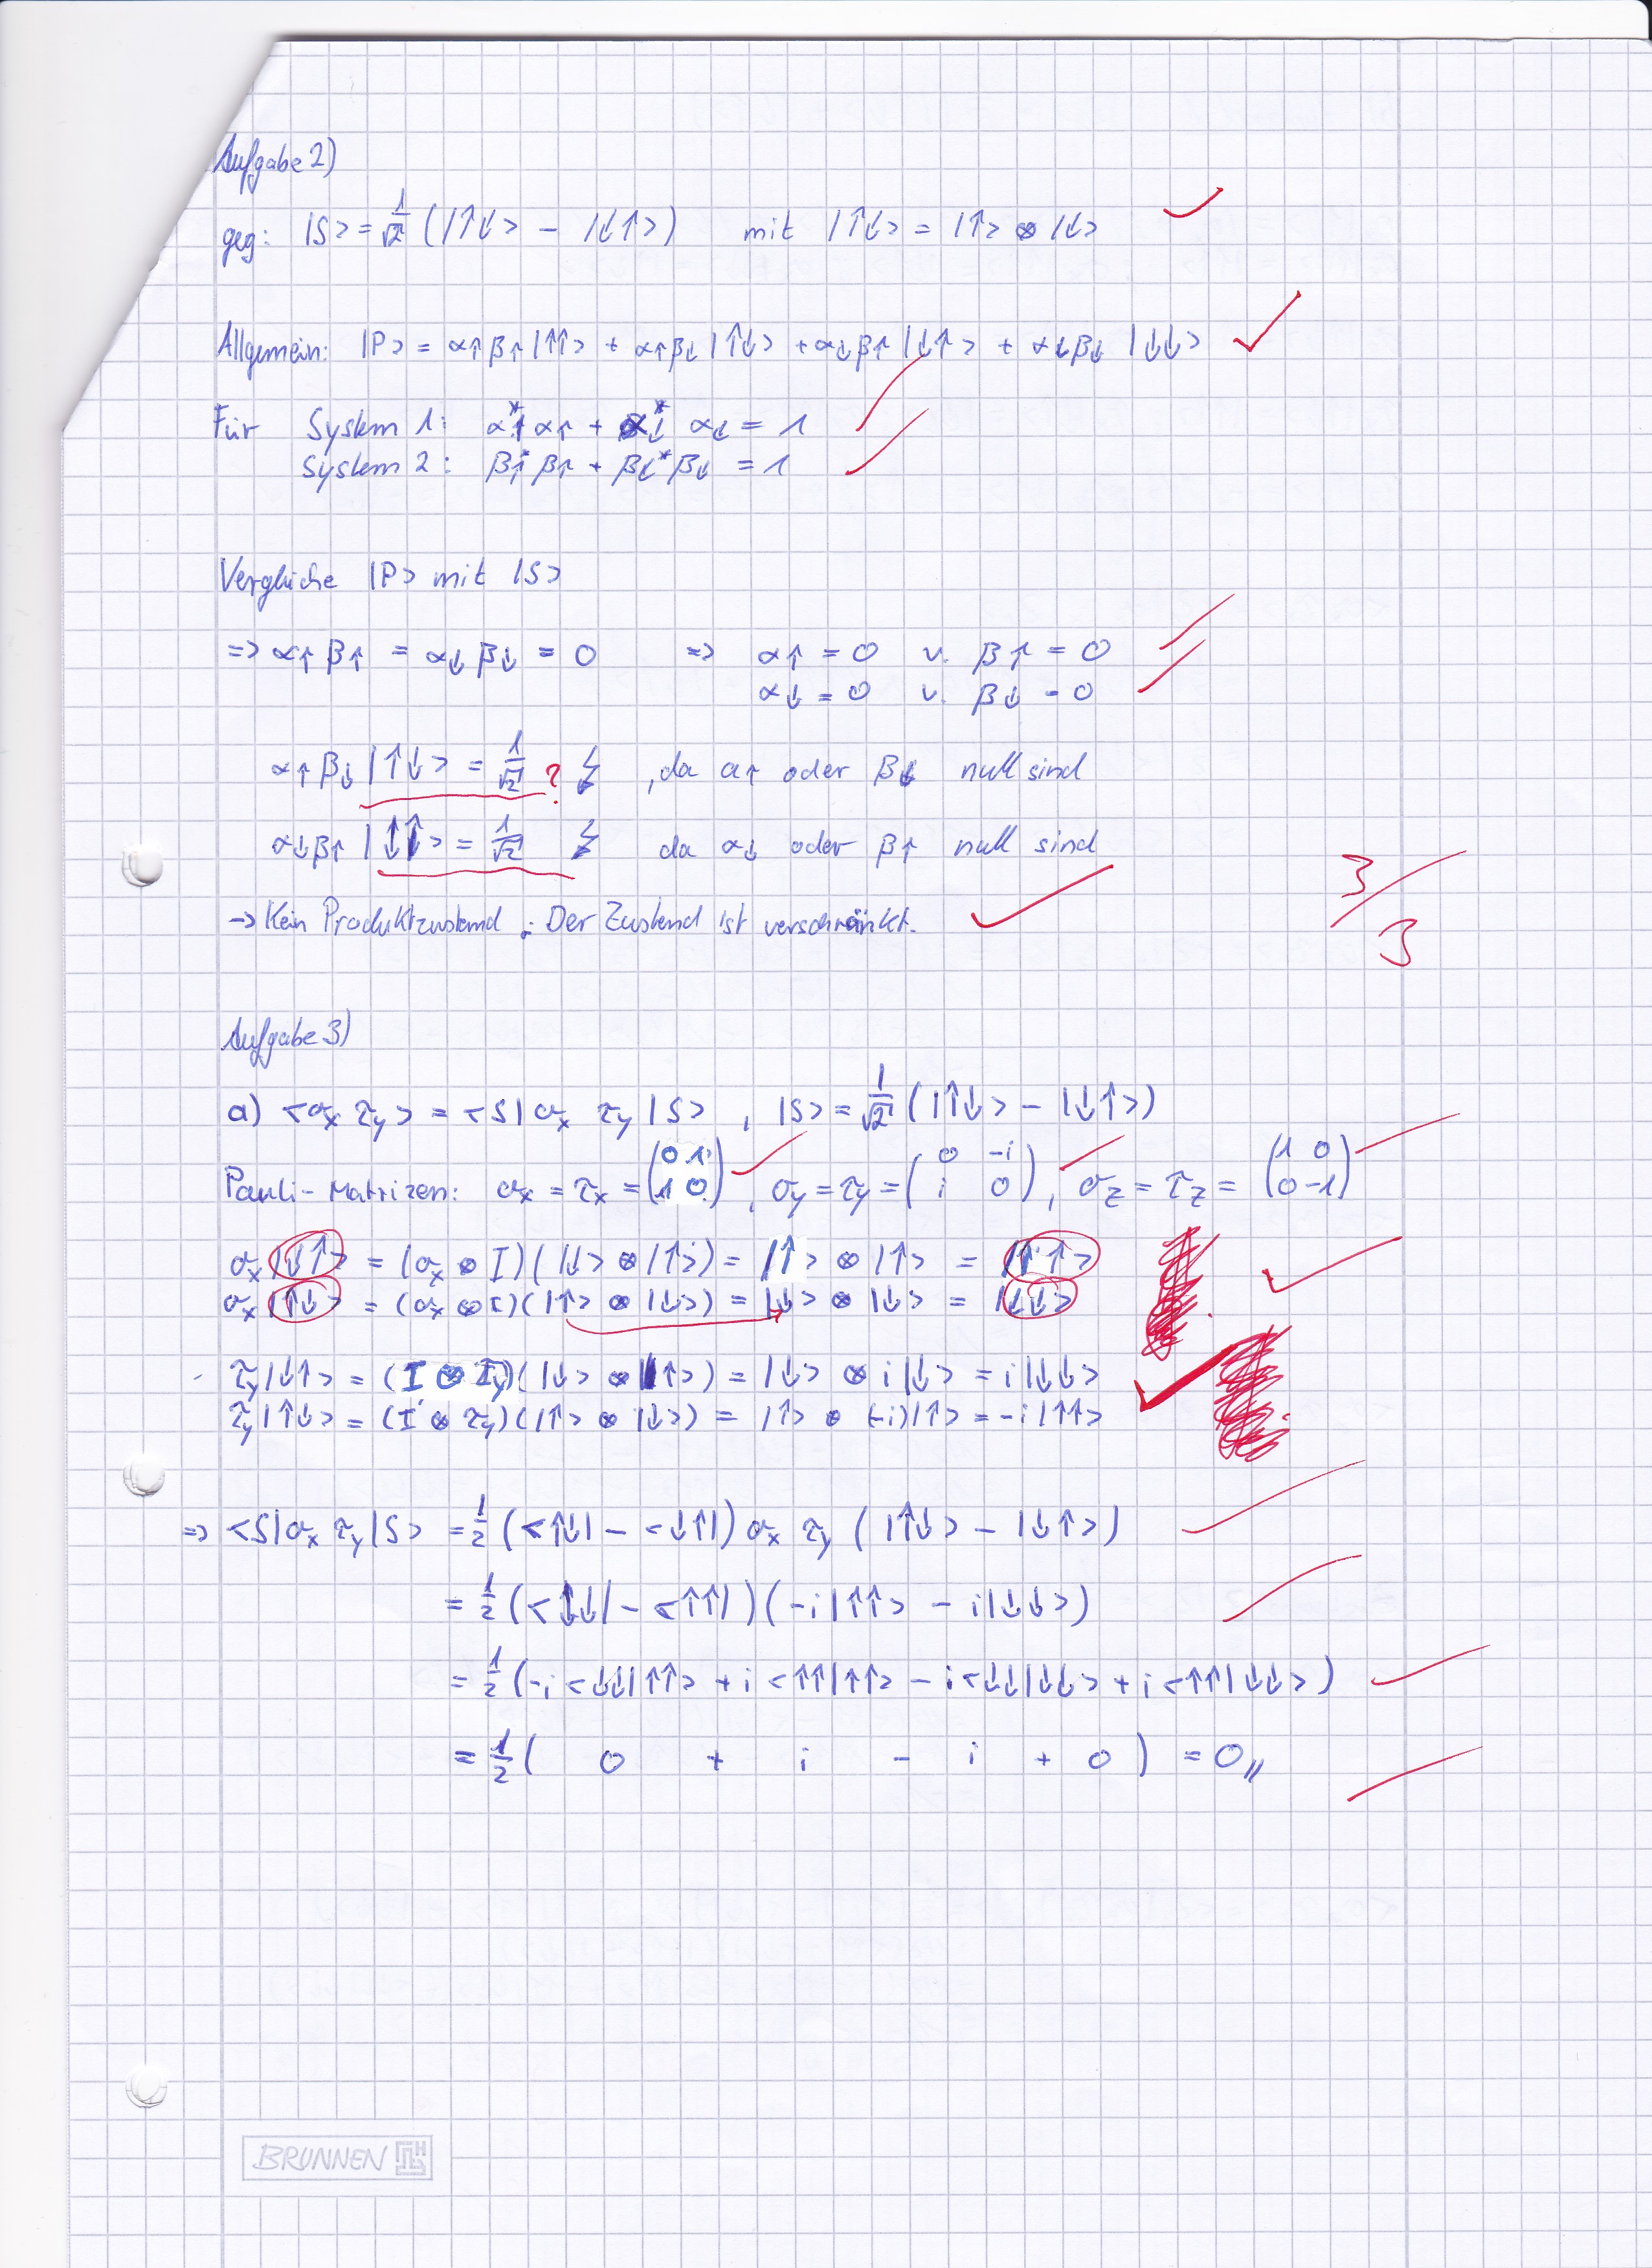 Aufgabe 2)
geg: |S> = 1/√2 (|↑↓> - |↓↑>) mit |↑↓> = |↑> ⊗ |↓>
Allgemein: |P> = α↑β↑|↑↑> + α↑β↓|↑↓> + α↓β↑|↓↑> + α↓β↓|↓↓>
Für System 1: α↑* α↑ + α↓* α↓ = 1
System 2: β↑* β↑ + β↓* β↓ = 1
Vergleiche |P> mit |S>
=> α↑ β↑ = α↓ β↓ = 0 => α↑ = 0 v. β↑ = 0
α↓ = 0 v. β↓ = 0
α↑ β↓ |↑↓> = 1/√2 ? ↯ , da α↑ oder β↓ null sind
α↓ β↑ |↓↑> = 1/√2 ↯ da α↓ oder β↑ null sind
→ Kein Produktzustand. Der Zustand ist verschränkt.
3/3
Aufgabe 3)
a) <σx τy> = <S| σx τy |S> , |S> = 1/√2 (|↑↓> - |↓↑>)
Pauli-Matrizen: σx = τx = (0 1; 1 0) , σy = τy = (0 -i; i 0) , σz = τz = (1 0; 0 -1)
σx |↓↑> = (σx ⊗ I)(|↓> ⊗ |↑>) = |↑> ⊗ |↑> = |↑↑>
σx |↑↓> = (σx ⊗ I)(|↑> ⊗ |↓>) = |↓> ⊗ |↓> = |↓↓>
τy |↓↑> = (I ⊗ τy)(|↓> ⊗ |↑>) = |↓> ⊗ i|↓> = i|↓↓>
τy |↑↓> = (I ⊗ τy)(|↑> ⊗ |↓>) = |↑> ⊗ (-i)|↑> = -i|↑↑>
=> <S|σx τy|S> = 1/2 (<↑↓| - <↓↑|) σx τy (|↑↓> - |↓↑>)
= 1/2 (<↓↓| - <↑↑|)(-i|↑↑> - i|↓↓>)
= 1/2 (-i <↓↓|↑↑> + i <↑↑|↑↑> - i <↓↓|↓↓> + i <↑↑|↓↓>)
= 1/2 ( 0 + i - i + 0 ) = 0
BRUNNEN